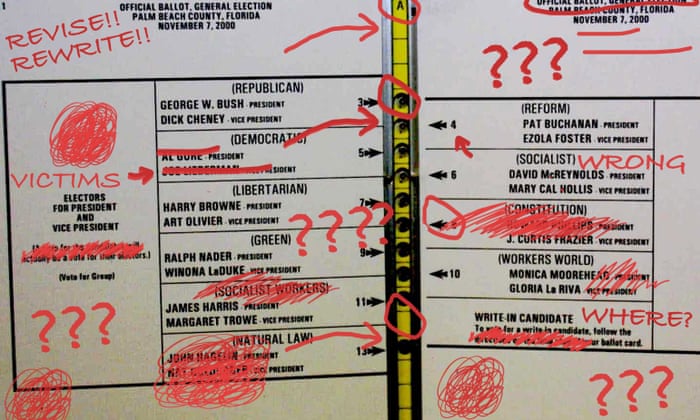 1
OFFICIAL BALLOT, GENERAL ELECTION
PALM BEACH COUNTY, FLORIDA
NOVEMBER 7, 2000
A
OFFICIAL BALLOT, GENERAL ELECTION
PALM BEACH COUNTY, FLORIDA
NOVEMBER 7, 2000
REVISE!!
REWRITE!!
???
(REPUBLICAN)
GEORGE W. BUSH - PRESIDENT
DICK CHENEY - VICE PRESIDENT
3
(DEMOCRATIC)
AL GORE - PRESIDENT
JOE LIEBERMAN - VICE PRESIDENT
5
(LIBERTARIAN)
HARRY BROWNE - PRESIDENT
ART OLIVIER - VICE PRESIDENT
7
(GREEN)
RALPH NADER - PRESIDENT
WINONA LaDUKE - VICE PRESIDENT
9
(SOCIALIST WORKERS)
JAMES HARRIS - PRESIDENT
MARGARET TROWE - VICE PRESIDENT
11
(NATURAL LAW)
JOHN HAGELIN - PRESIDENT
PRESIDENT
13
VICTIMS
ELECTORS
FOR PRESIDENT
AND
VICE PRESIDENT
actually be a vote for their electors.)
(Vote for Group)
???
????
(REFORM)
4
PAT BUCHANAN - PRESIDENT
EZOLA FOSTER - VICE PRESIDENT
(SOCIALIST)
WRONG
6
DAVID McREYNOLDS - PRESIDENT
MARY CAL HOLLIS - VICE PRESIDENT
(CONSTITUTION)
8
PHILLIPS - PRESIDENT
J. CURTIS FRAZIER - VICE PRESIDENT
(WORKERS WORLD)
10
MONICA MOOREHEAD - PRESIDENT
GLORIA La RIVA - VICE PRESIDENT
WRITE-IN CANDIDATE
WHERE?
To vote for a write-in candidate, follow the
your ballot card.
???